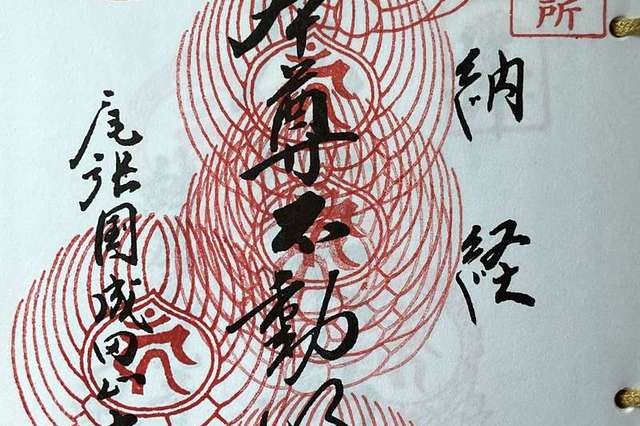 所
納経
本尊不動明
尾張国成田山